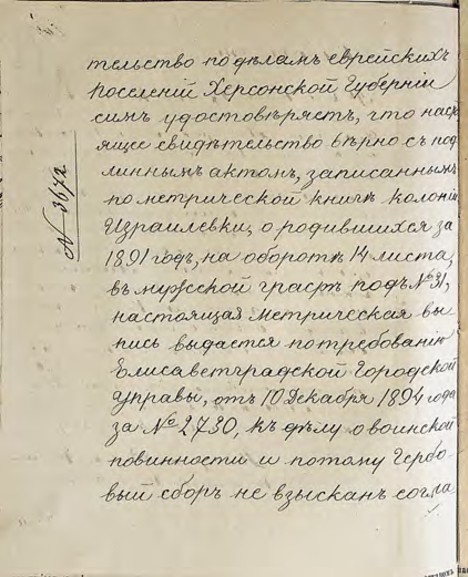 тельство по дѣламъ еврейскихъ
поселеній Херсонской Губерніи
симъ удостовѣряетъ, что насто
ящее свидѣтельство вѣрно съ под
линнымъ актомъ, записаннымъ
по метрической книгѣ колоніи
Израилевки, о родившихся за
1891 годъ, на оборотѣ 14 листа,
въ мужской графѣ подъ №31,
настоящая метрическая вы
пись выдается по требованію
Елисаветградской Городской
Управы, отъ 10 Декабря 1894 года
за №2730, къ дѣлу о воинской
повинности и потому Гербо
вый сборъ не взысканъ согла
№ 3672